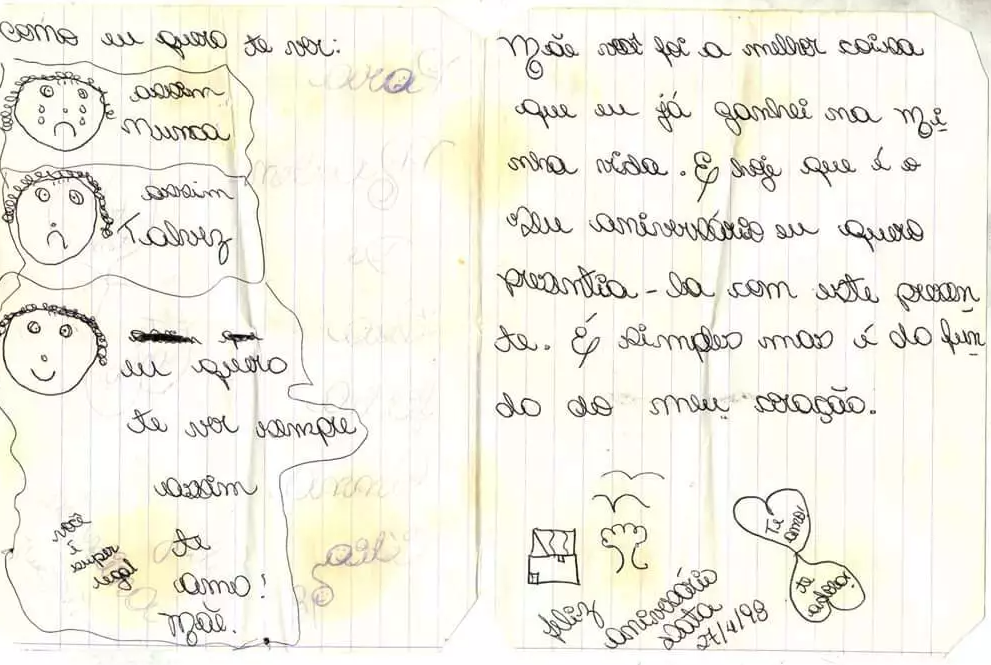 como eu quero te ver:
assim
Nunca
assim
Talvez
eu quero
te ver sempre
assim
você
é
super
legal
te
amo!
Mãe.
Mãe você foi a melhor coisa
que eu já ganhei na mi
nha vida. E hoje que é o
Seu aniversário eu quero
presentia-la com este presen
te. É simples mas é do fun
do do meu coração.
Te
amo!
te
adoro!
feliz
aniversário
data
27/4/98